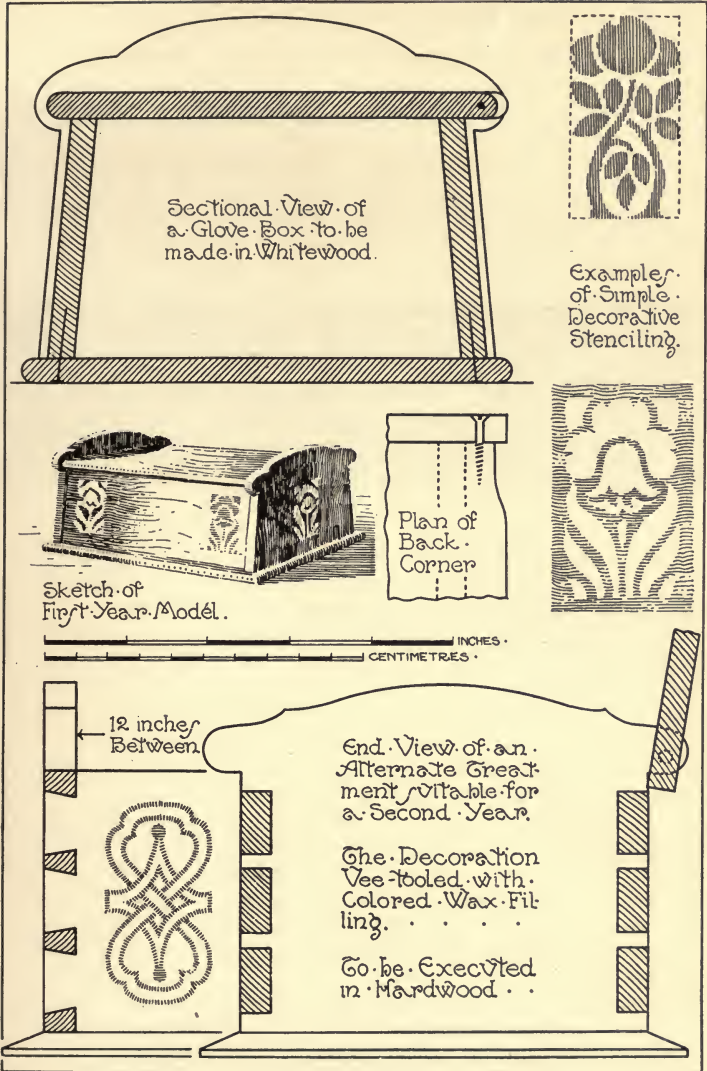 Sectional·View·of
a·Glove·Box·to·be
made·in·Whitewood.
Examples·
of·Simple·
Decorative
Stenciling.
Plan of
Back·
Corner
Sketch·of
First·Year·Model.
INCHES·
CENTIMETRES·
12 inches
Between
End·View·of·an·
Alternate Treat-
ment suitable·for
a·Second·Year.
The·Decoration
Vee-tooled·with·
Colored·Wax·Fil-
ling. · · · ·
To·be·Executed
in·Hardwood · ·